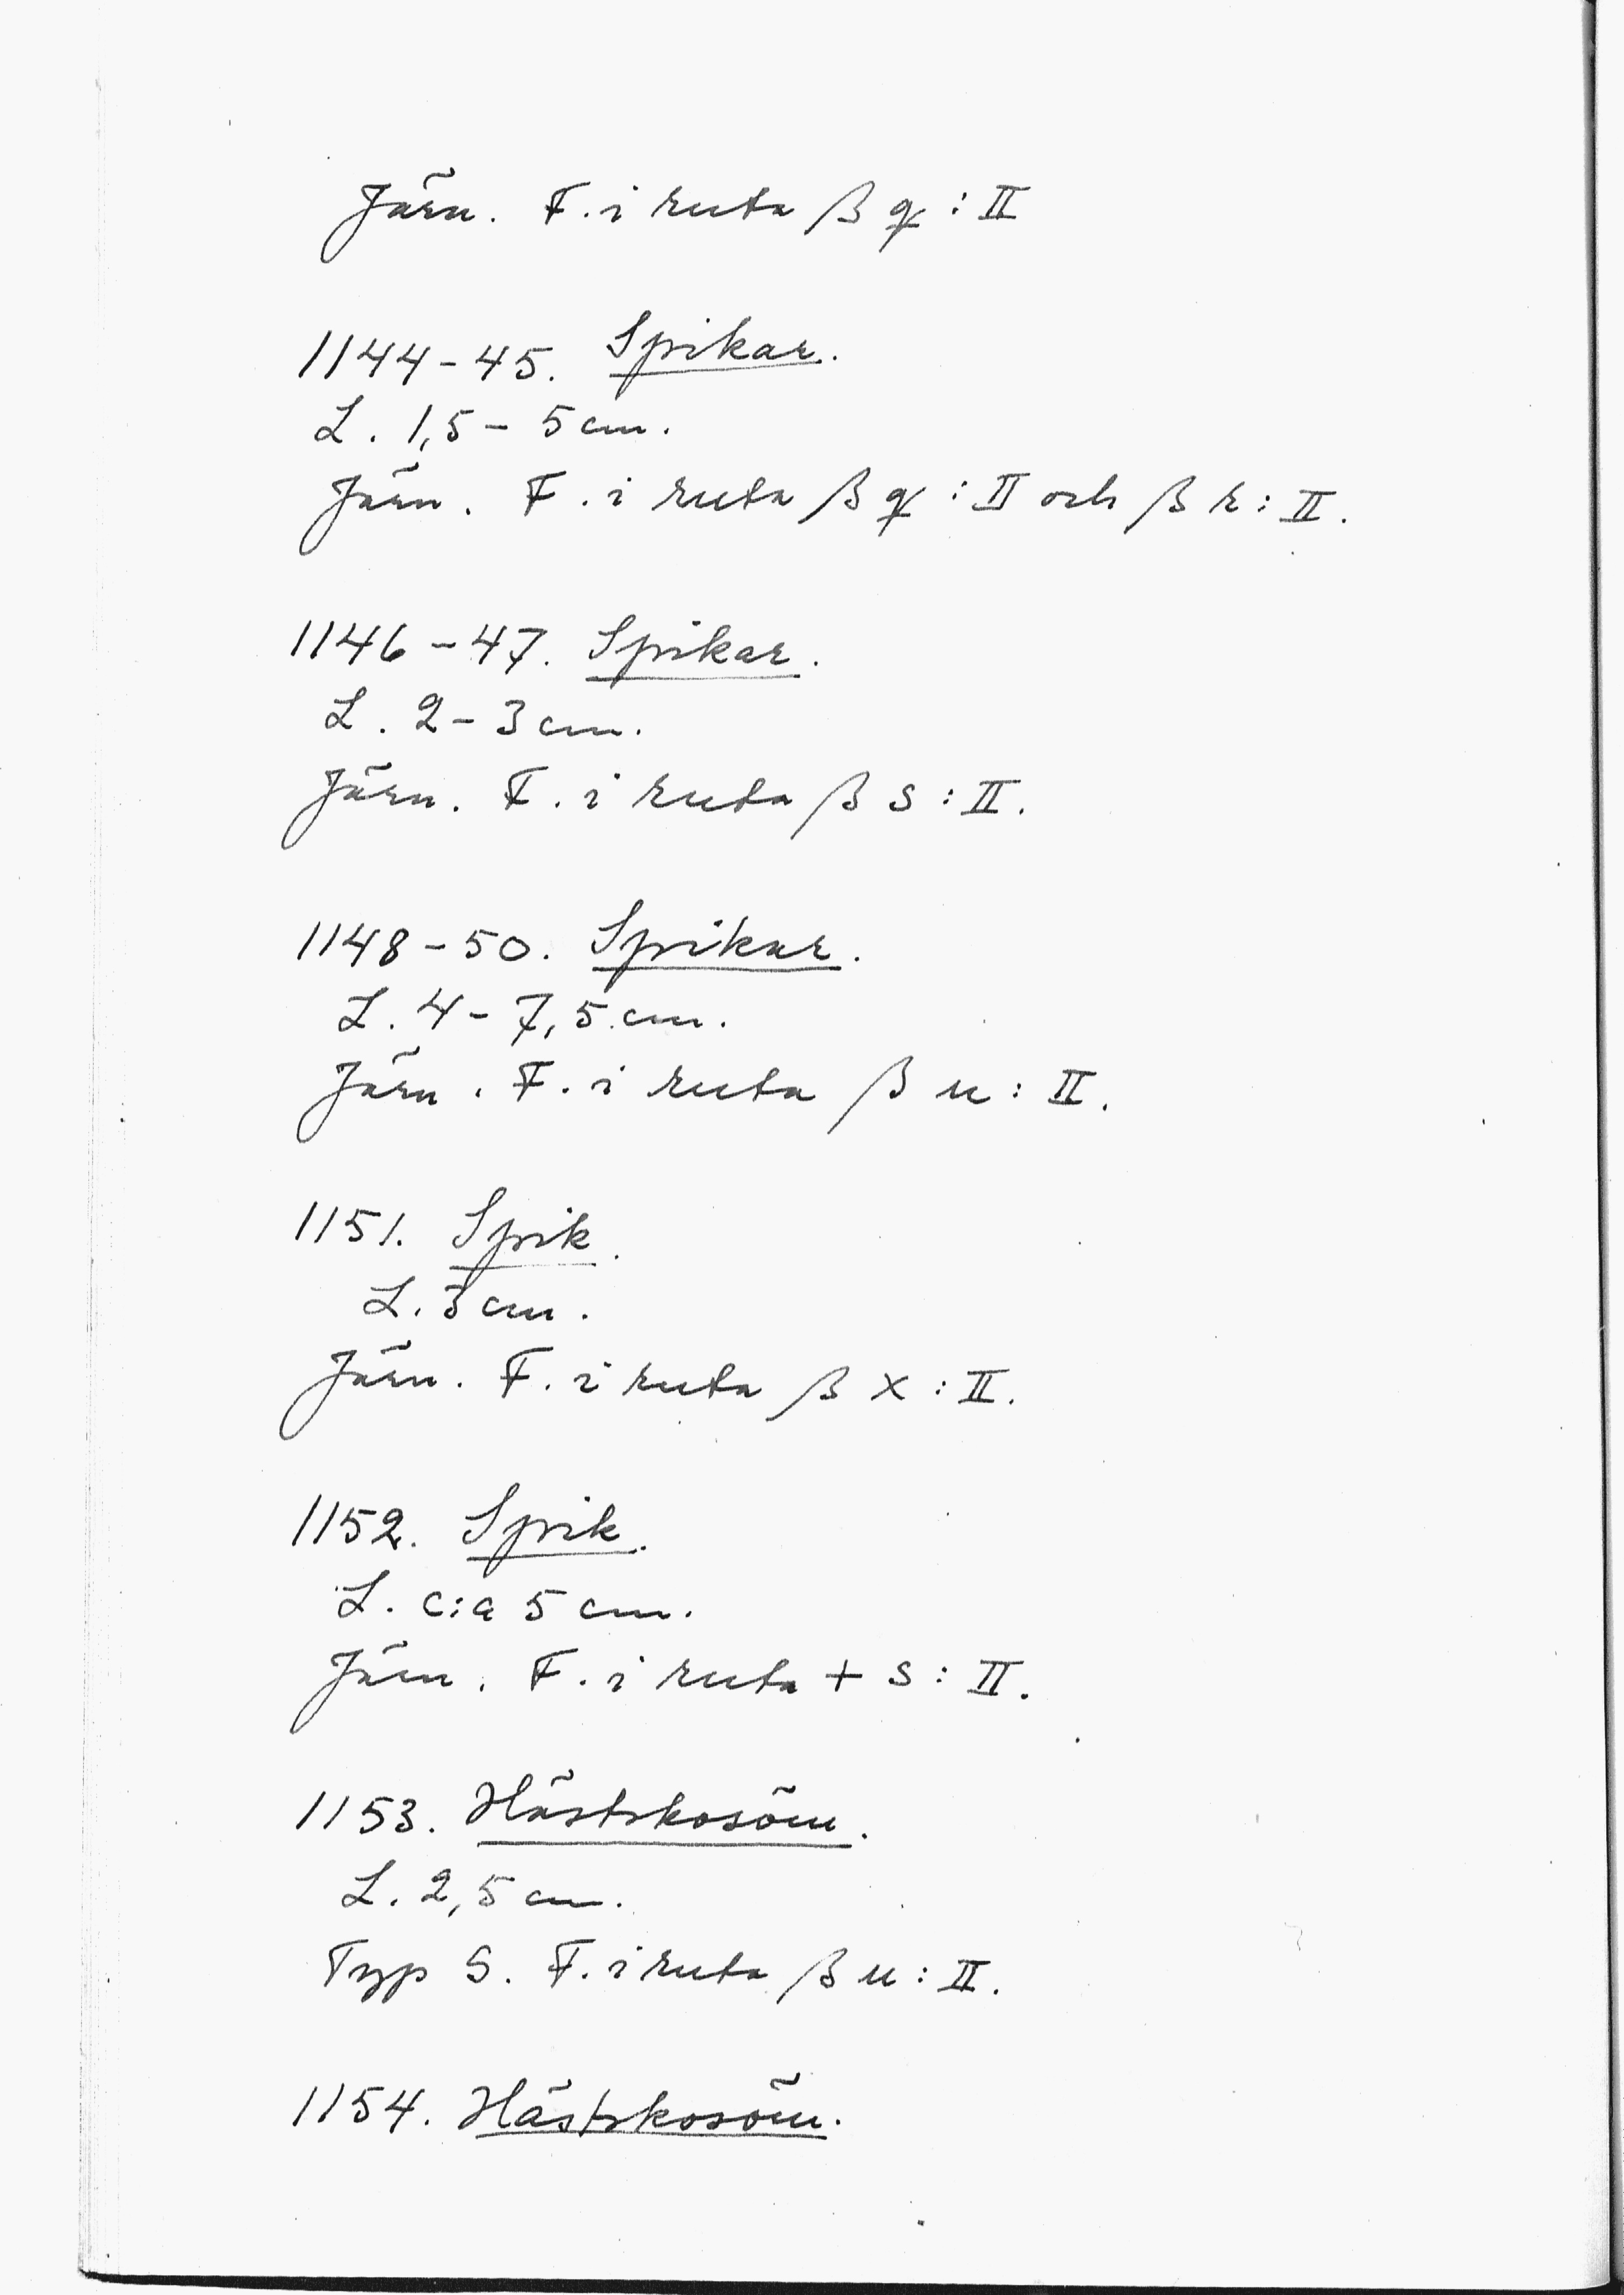 Järn. F. i ruta β q : II
1144-45. Spikar.
L. 1,5 - 5 cm.
Järn. F. i ruta β q : II och β r : II.
1146-47. Spikar.
L. 2 - 3 cm.
Järn. F. i ruta β s : II.
1148-50. Spikar.
L. 4 - 7,5 cm.
Järn. F. i ruta β u : II.
1151. Spik.
L. 3 cm.
Järn. F. i ruta β x : II.
1152. Spik.
L. c:a 5 cm.
Järn. F. i ruta + s : II.
1153. Hästskosöm.
L. 2,5 cm.
Typ S. F. i ruta β u : II.
1154. Hästskosöm.